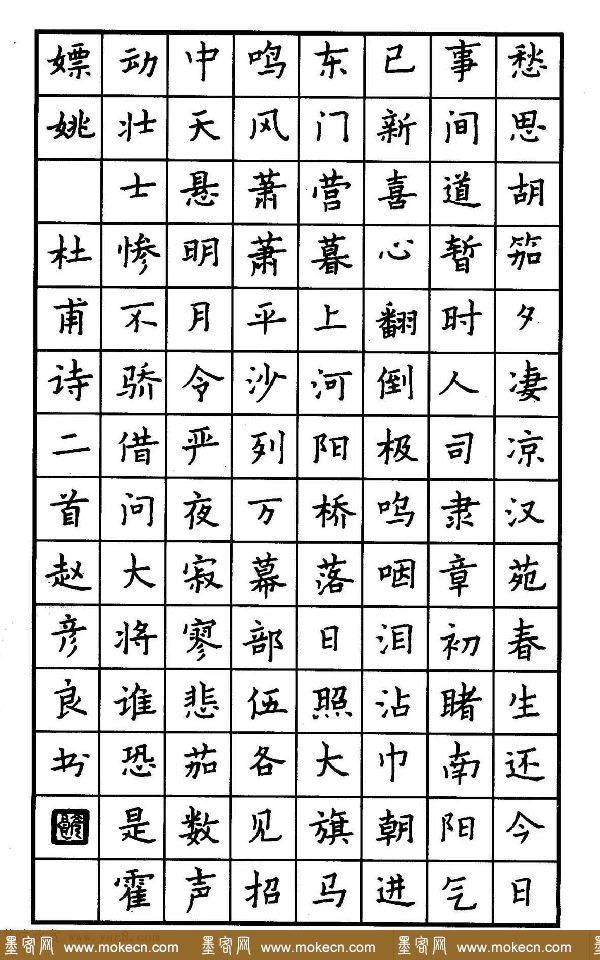 愁思胡笳夕凄凉汉苑春生还今日
事间道暂时人司隶章初睹南阳气
已新喜心翻倒极呜咽泪沾巾朝进
东门营暮上河阳桥落日照大旗马
鸣风萧萧平沙列万幕部伍各见招
中天悬明月令严夜寂寥悲茄数声
动壮士惨不骄借问大将谁恐是霍
嫖姚 杜甫诗二首赵彦良书
墨客网 www.mokecn.com 墨客网 www.mokecn.com 墨客网 www.mokecn.com